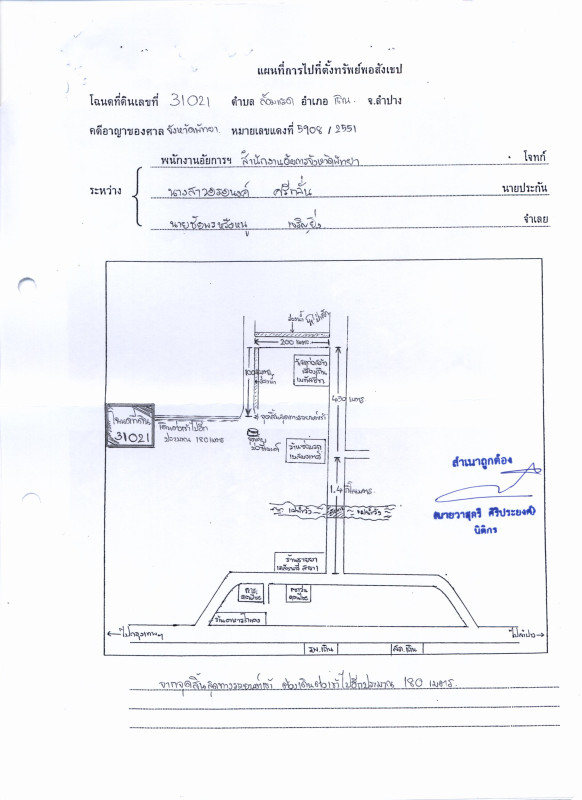 แผนที่การไปที่ตั้งทรัพย์พอสังเขป
โฉนดที่ดินเลขที่ 31021 ตำบล ล้อมแรด อำเภอ เถิน จ.ลำปาง
คดีอาญาของศาล จังหวัดพัทยา หมายเลขแดงที่ 5908 / 2551
พนักงานอัยการฯ สำนักงานอัยการจังหวัดพัทยา โจทก์
ระหว่าง นางสาวอรอนงค์ ศรีหมั่น นายประกัน
จำเลย
200 เมตร
100 เมตร
430 เมตร
จุดสิ้นสุดทางรถยนต์เข้า
โฉนดที่ดิน
31021
เดินต่อเข้าไปอีก
ประมาณ 180 เมตร
1.4 กิโลเมตร
สำเนาถูกต้อง
(นายวาสุกรี ศิริประยงค์)
นิติกร
ร้านขายยา
ไปกรุงเทพฯ
ไปลำปาง
รพ.เถิน
สภ.เถิน
จากจุดสิ้นสุดทางรถยนต์เข้า ต้องเดินต่อเข้าไปอีกประมาณ 180 เมตร.